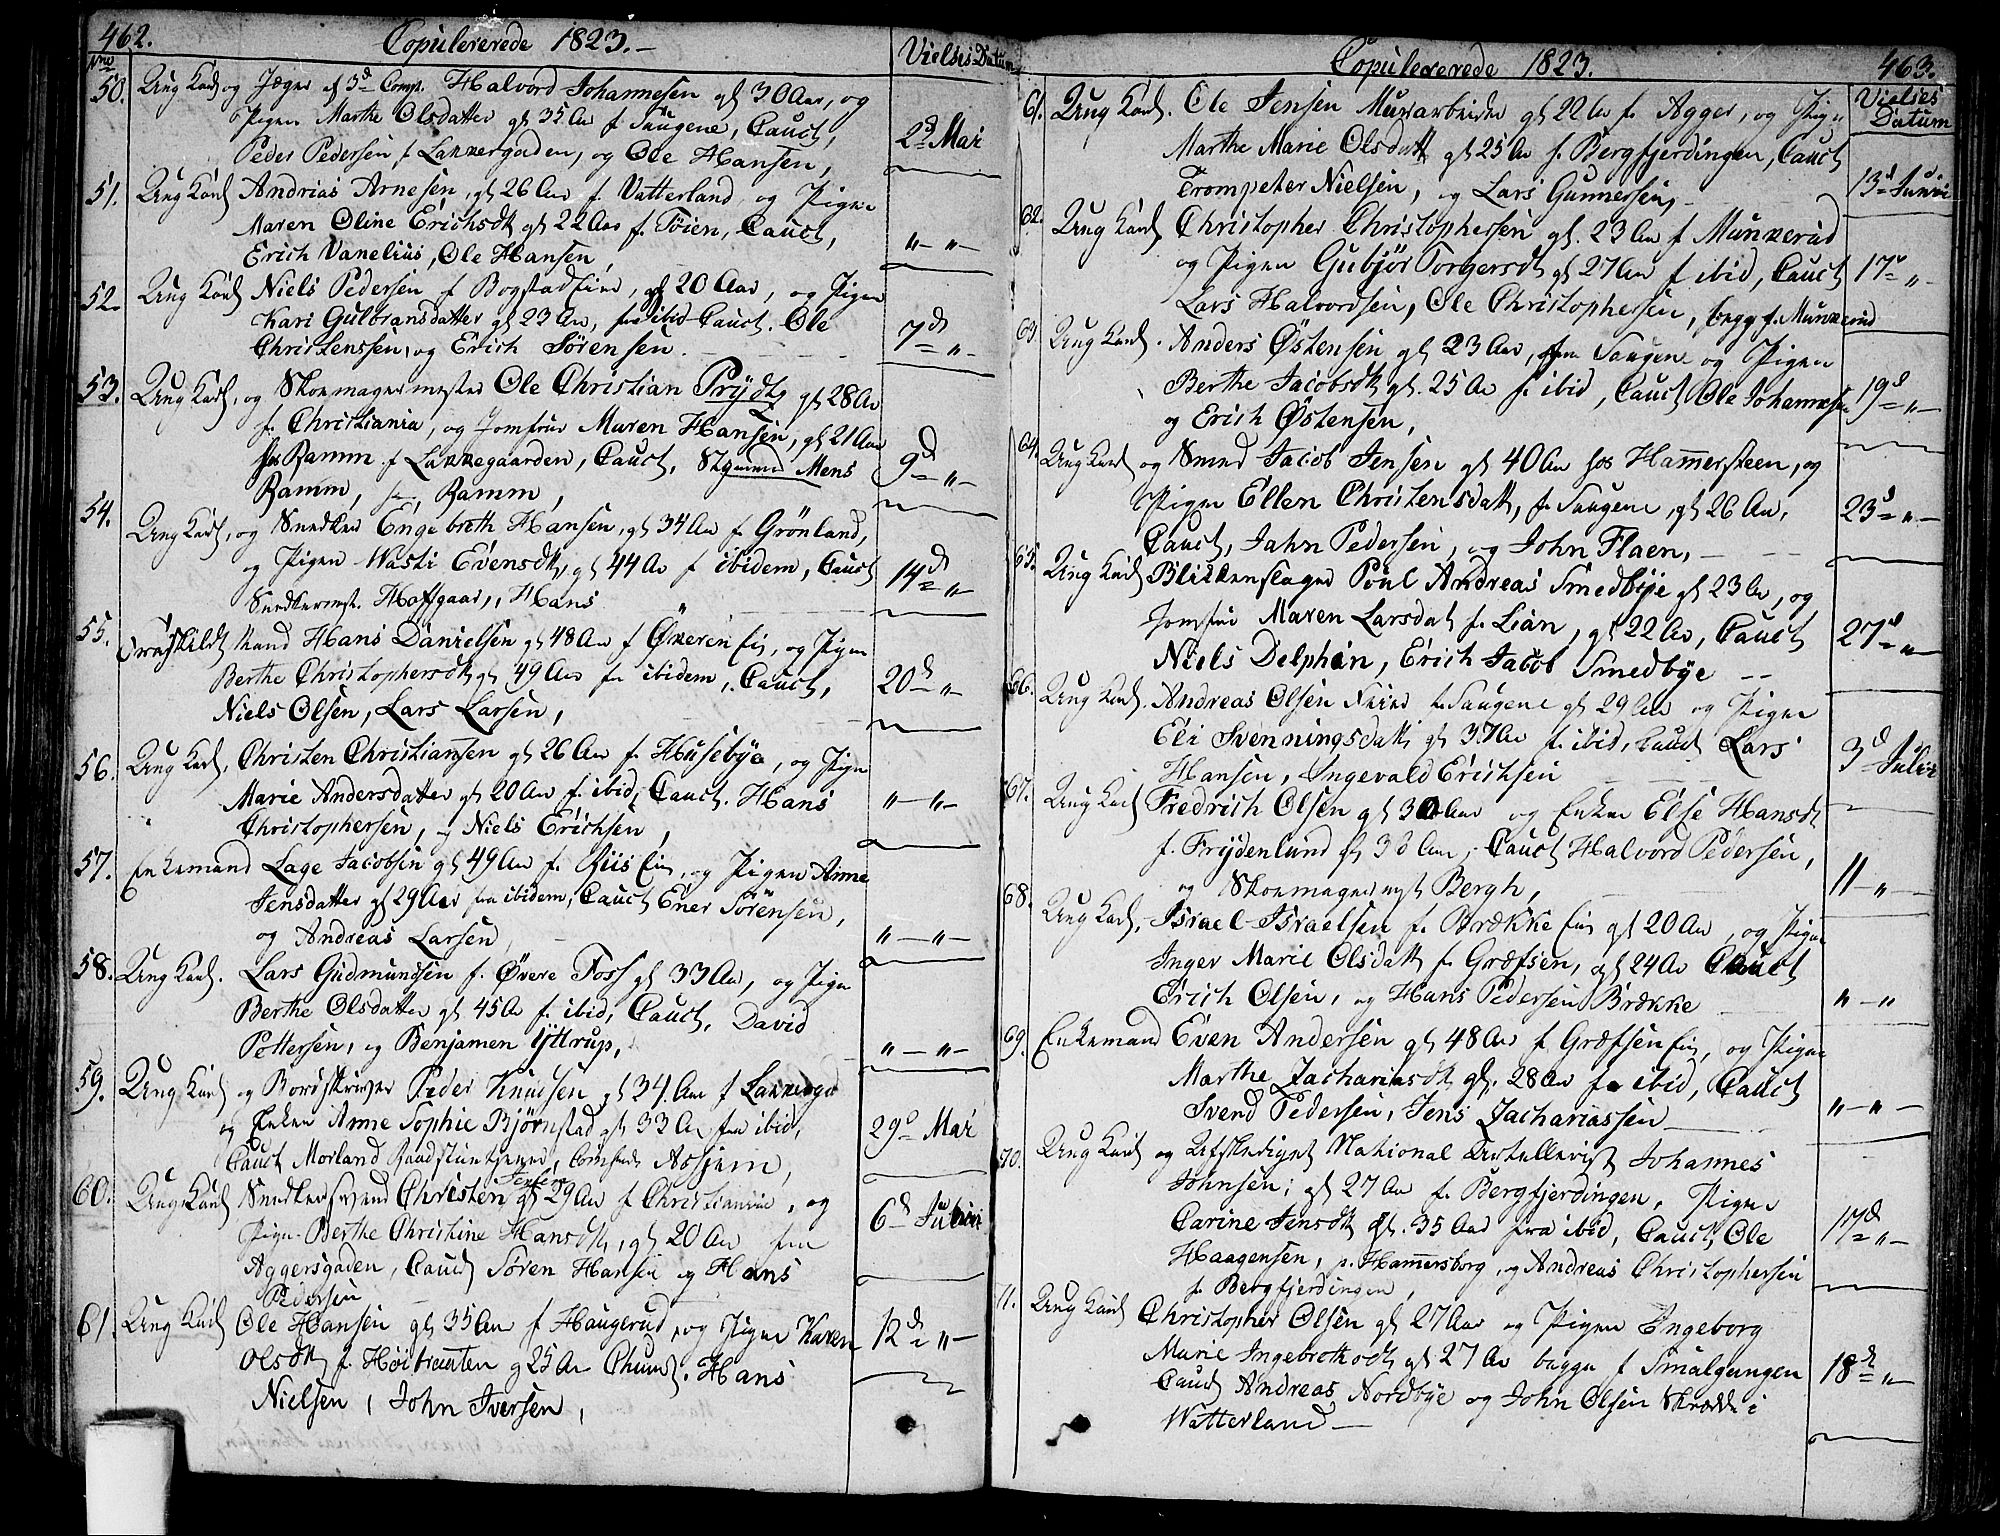 462.
Copulererede 1823.-
Nro
Vielsis Datum
50. Ung Karl og Jæger af 3d Comp. Halvord Johannesen gl 30 Aar, og
Pigen Marthe Olsdatter gl 35 Aar f Saugene, Cauct,
Peder Pedersen f Lakkergaden, og Ole Hansen,
2d Mai
51. Ung Karl Andrias Arnesen, gl 26 Aar f. Vatterland, og Pigen
Maren Oline Erichsdtr gl 22 Aar f. Töien, Cauct,
Erich Vanelius, Ole Hansen
"-"-
52 Ung Karl Niels Pedersen f Bogstad Eie, gl 20 Aar, og Pigen
Kari Gulbransdatter gl 23 Aar, fra ibid Cauct. Ole
Christenssen, og Erich Sörensen.
7d "-
53. Ung Karl, og Skoemagermester Ole Christian Prÿdtz gl 28 Aar
f. Christiania, og Jomfrue Maren Hansen, gl 21 Aar
hos Ramm f Lakkegaarden, Cauct. Mens
Ramm, Ramm,
9d "-
54. Ung Karl, og Snedker Engebreth Hansen, gl 34 Aar f Grönland,
og Pigen Wasti Evensdtr, gl 44 Aar f ibidem, Cauct
Snedkermst. Hoffgaar, Hans
14d "
55. Fraskildt Mand Hans Danielsen gl 48 Aar f Økeren Eie, og Pigen
Berthe Christophersdtr gl 49 Aar fr ibidem, Cauct,
Niels Olsen, Lars Larsen,
20d "-
56. Ung Karl, Christen Christiansen gl 26 Aar f. Husebye, og Pigen
Marie Andersdatter gl 20 Aar f. ibid, Cauct. Hans
Christophersen, og Niels Erichsen,
"-"-
57. Enkemand Lage Jacobsen gl 49 Aar f. Riis Eie, og Pigen Anne
Jensdatter gl 29 Aar fra ibidem, Cauct Ener Sörensen,
og Andreas Larsen,
"-"-
58. Ung Karl. Lars Gudmundsen f. Övere Foss gl 33 Aar, og Pigen
Berthe Olsdatter gl 45 Aar f. ibid, Cauct, David
Pottersen, og Benjamen Ÿttrup,
"-"-
59. Ung Karl og Bordskriver Peder Knudsen gl 34 Aar f Lakkegd
og Enken Anne Sophie Björnstad gl 33 Aar fra ibid,
Cauct Morland Raadstuetjener, Asjem,
29d Mai
60. Ung Karl Snedkersvend Christen Jensen gl 29 Aar f Christiania, og
Pigen Berthe Christine Hansdtr, gl 20 Aar fra
Aggersgaden, Cauct Sören Hansen og Hans
Pedersen
6d Junii
61. Ung Karl Ole Hansen gl 35 Aar f Haugerud, og Pigen Karen
Olsdtr f. Höibraaten gl 25 Aar Cauct. Hans
Nielsen, John Iversen,
12d "-
Copulererede 1823.
463.
Vielses
Datum
61. Ung Karl. Ole Jensen Murarbeider gl 22 Aar f. Agger, og Pigen
Marthe Marie Olsdatt gl 25 Aar f. Bergfjerdingen, Cauct
Trompeter Nielsen, og Lars Gunnersen,
13d Junii
62. Ung Karl Christopher Christophersen gl. 23 Aar f Munkerud
og Pigen Gubjör Torgersdtr gl 27 Aar f ibid, Cauct
Lars Halvordsen, Ole Christophersen, begge f. Munkerud
17d "-
63. Ung Karl. Anders Östensen gl 23 Aar, fra Saugene og Pigen
Berthe Jacobsdtr gl. 25 Aar f ibid, Cauct, Ole Johannesen
og Erich Östensen,
19d "-
64. Ung Karl og Smed Jacob Jensen gl 40 Aar hos Hammersteen, og
Pigen Ellen Christensdatt, f. Saugene, gl 26 Aar,
Cauct, Jahn Pedersen, og John Flaen,
23d "-
65. Ung Karl Blikkenslager Poul Andreas Smedbÿe gl 23 Aar, og
Jomfrue Maren Larsdat f. Lian, gl 22 Aar, Cauct
Niels Delphin, Erich Jacob Smedbÿe
27d "-
66. Ung Karl. Andreas Olsen f Saugene gl 29 Aar og Pigen
Eli Svenningsdatt gl 37 Aar f. ibid, Cauct Lars
Hansen, Ingevald Erichsen
3d Julii
67. Ung Karl Fredrich Olsen gl 30 Aar og Enken Else Hansdt
f. Frÿdenlund gl 38 Aar, Cauct Halvord Pedersen,
og Skoemagermst Bergh,
11 - "-
68. Ung Karl, Israel Israelsen f. Brække Eie gl 20 Aar, og Pigen
Inger Marie Olsdatt f. Græfsen, gl 24 Aar Cauct
Erich Olsen, og Hans Pedersen Brække
"-"
69. Enkemand Even Andersen gl 48 Aar f Græfsen Eie, og Pigen
Marthe Zachariasdtr gl. 28 Aar fr ibid, Cauct
Svend Pedersen, Jens Zachariassen
"-"-
70. Ung Karl og Afskediget National Artellerist Johannes
Johnsen, gl 27 Aar f. Bergfjerdingen, Pigen
Carine Jensdtr gl. 35 Aar fra ibid, Cauct, Ole
Haagensen, p. Hamersborg, og Andreas Christophersen
f. Bergfjerdingen,
17d "-
71. Ung Karl Christopher Olsen gl 27 Aar og Pigen Engeborg
Marie Ingebrethsdtr gl 27 Aar begge f Smalgangen
Cauct Andreas Nordbye og John Olsen Skrædder i
Watterland-
18d "-